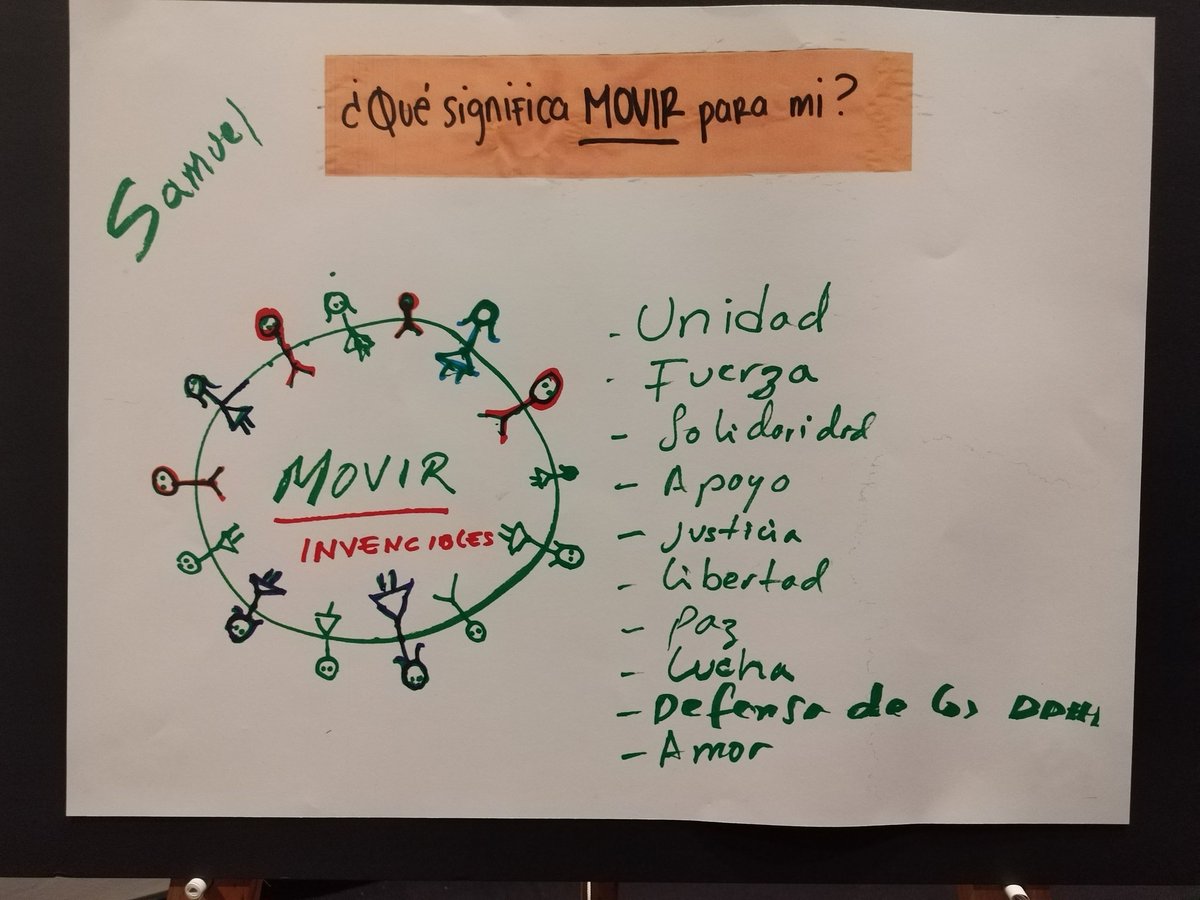 ¿Qué significa MOVIR para mi?
Samuel
MOVIR
INVENCIBLES
- Unidad
- Fuerza
- Solidaridad
- Apoyo
- Justicia
- Libertad
- Paz
- Lucha
- Defensa de los DDHH
- Amor